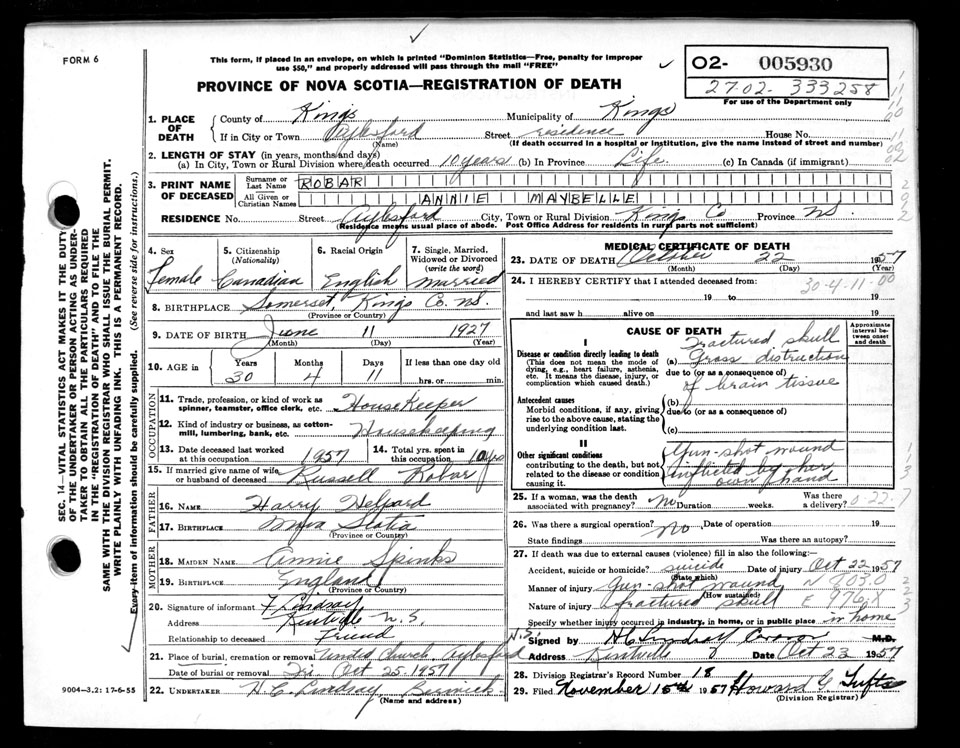 FORM 6
This form, if placed in an envelope, on which is printed "Dominion Statistics—Free, penalty for improper
use $50," and properly addressed will pass through the mail "FREE"
O2- 005930
27-02- 333258
For use of the Department only
PROVINCE OF NOVA SCOTIA—REGISTRATION OF DEATH
1. PLACE OF DEATH
County of Kings Municipality of Kings
If in City or Town Aylesford Street residence House No.
(Name) (If death occurred in a hospital or institution, give the name instead of street and number)
2. LENGTH OF STAY (in years, months and days)
(a) In City, Town or Rural Division where death occurred 10 years (b) In Province Life (c) In Canada (if immigrant)
3. PRINT NAME OF DECEASED
Surname or Last Name ROBAR
All Given or Christian Names ANNIE MAYBELLE
RESIDENCE No. Street Aylesford City, Town or Rural Division Kings Co Province N.S.
(Residence means usual place of abode. Post Office Address for residents in rural parts not sufficient)
4. Sex
Female
5. Citizenship
(Nationality)
Canadian
6. Racial Origin
English
7. Single, Married, Widowed or Divorced
(write the word)
Married
8. BIRTHPLACE Somerset, Kings Co. N.S.
(Province or Country)
9. DATE OF BIRTH June 11 1927
(Month) (Day) (Year)
10. AGE in Years Months Days If less than one day old
30 4 11 hrs. or min.
OCCUPATION
11. Trade, profession, or kind of work as
spinner, teamster, office clerk, etc. HouseKeeper
12. Kind of industry or business, as cotton-
mill, lumbering, bank, etc. Housekeeping
13. Date deceased last worked
at this occupation 1957
14. Total yrs. spent in
this occupation 10 yrs
15. If married give name of wife
or husband of deceased Russell Robar
FATHER
16. NAME Harry
17. BIRTHPLACE Nova Scotia
(Province or Country)
MOTHER
18. MAIDEN NAME Annie Spinks
19. BIRTHPLACE England
(Province or Country)
20. Signature of informant F Lindsay
Address Kentville N.S.
Relationship to deceased Friend
21. Place of burial, cremation or removal United Church, Aylesford N.S.
Date of burial or removal Fri Oct 25-1957
22. UNDERTAKER H.C. Lindsay Berwick
(Name and address)
MEDICAL CERTIFICATE OF DEATH
23. DATE OF DEATH October 22 1957
(Month) (Day) (Year)
24. I HEREBY CERTIFY that I attended deceased from:
30-4-11-00
19 to 19
and last saw h alive on 19
CAUSE OF DEATH
Approximate interval between onset and death
I
Disease or condition directly leading to death
(This does not mean the mode of
dying, e.g., heart failure, asthenia,
etc. It means the disease, injury, or
complication which caused death.)
Fractured skull
(a) Gross distruction
due to (or as a consequence)
of brain tissue
Antecedent causes
Morbid conditions, if any, giving
rise to the above cause, stating the
underlying condition last.
(b)
due to (or as a consequence)
(c)
II
Other significant conditions
contributing to the death, but not
related to the disease or condition
causing it.
Gun-shot wound
inflicted by her
own hand
25. If a woman, was the death
associated with pregnancy? No Duration weeks.
Was there
a delivery?
0-22-7
26. Was there a surgical operation? No Date of operation 19
State findings Was there an autopsy?
27. If death was due to external causes (violence) fill in also the following:—
Accident, suicide or homicide? suicide Date of injury Oct 22 1957
(State which)
Manner of injury Gun-shot wound N 803.0
(How sustained)
Nature of injury fractured skull E 976.X
Specify whether injury occurred in industry, in home, or in public place in home
Signed by M.D.
Address Kentville Date Oct 23 1957
28. Division Registrar's Record Number 18
29. Filed November 15th 1957 Howard G. Tufts
(Division Registrar)
SEC. 14—VITAL STATISTICS ACT MAKES IT THE DUTY
OF THE UNDERTAKER OR PERSON ACTING AS UNDER-
TAKER TO OBTAIN ALL THE PARTICULARS REQUIRED
IN THE "REGISTRATION OF DEATH" AND TO FILE THE
SAME WITH THE DIVISION REGISTRAR WHO SHALL ISSUE THE BURIAL PERMIT.
WRITE PLAINLY WITH UNFADING INK. THIS IS A PERMANENT RECORD.
Every item of information should be carefully supplied. (See reverse side for instructions.)
9004-3.2: 17-6-55